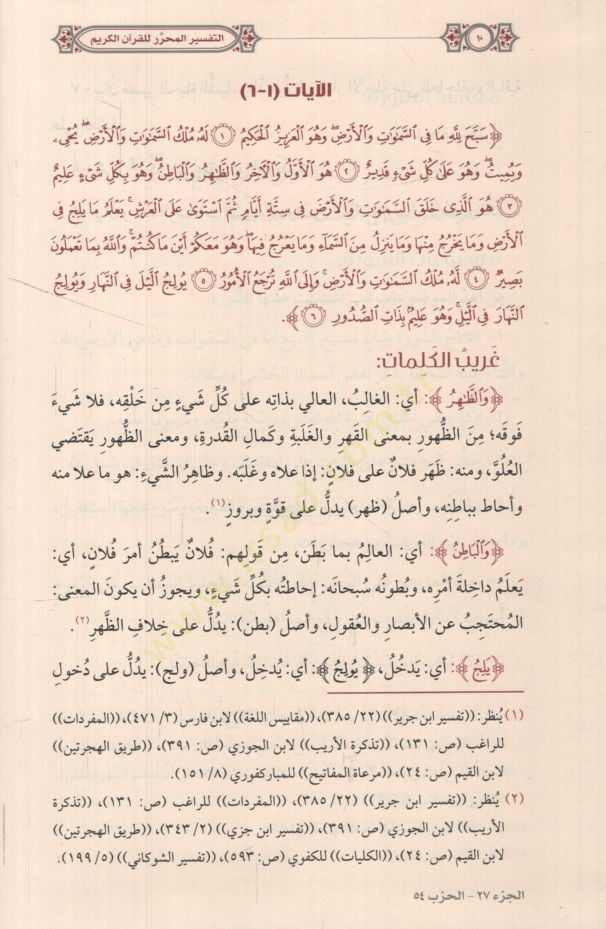 ١٠
التفسير المحرَّر للقرآن الكريم
الآيات (١-٦)
﴿سَبَّحَ لِلَّهِ مَا فِي السَّمَٰوَٰتِ وَالْأَرْضِ ۖ وَهُوَ الْعَزِيزُ الْحَكِيمُ ١ لَهُ مُلْكُ السَّمَٰوَٰتِ وَالْأَرْضِ ۖ يُحْيِۦ
وَيُمِيتُ ۖ وَهُوَ عَلَىٰ كُلِّ شَيْءٍ قَدِيرٌ ٢ هُوَ الْأَوَّلُ وَالْآخِرُ وَالظَّٰهِرُ وَالْبَاطِنُ ۖ وَهُوَ بِكُلِّ شَيْءٍ عَلِيمٌ
٣ هُوَ الَّذِي خَلَقَ السَّمَٰوَٰتِ وَالْأَرْضَ فِي سِتَّةِ أَيَّامٍ ثُمَّ اسْتَوَىٰ عَلَى الْعَرْشِ ۚ يَعْلَمُ مَا يَلِجُ فِي
الْأَرْضِ وَمَا يَخْرُجُ مِنْهَا وَمَا يَنزِلُ مِنَ السَّمَاءِ وَمَا يَعْرُجُ فِيهَا ۖ وَهُوَ مَعَكُمْ أَيْنَ مَا كُنتُمْ ۚ وَاللَّهُ بِمَا تَعْمَلُونَ
بَصِيرٌ ٤ لَّهُ مُلْكُ السَّمَٰوَٰتِ وَالْأَرْضِ ۚ وَإِلَى اللَّهِ تُرْجَعُ الْأُمُورُ ٥ يُولِجُ الَّيْلَ فِي النَّهَارِ وَيُولِجُ
النَّهَارَ فِي الَّيْلِ ۚ وَهُوَ عَلِيمٌ بِذَاتِ الصُّدُورِ ٦﴾.
غَريبُ الكَلِمات:
﴿وَالظَّٰهِرُ﴾: أي: الغالِبُ، العالي بذاتِه على كُلِّ شَيءٍ مِن خَلْقِه، فلا شَيءَ
فَوقَه؛ مِنَ الظُّهورِ بمعنى القَهرِ والغَلَبةِ وكَمالِ القُدرةِ، ومعنى الظُّهورِ يَقتَضي
العُلُوَّ، ومنه: ظَهَر فلانٌ على فلانٍ: إذا علاه وغَلَبَه. وظاهِرُ الشَّيءِ: هو ما علا منه
وأحاط بباطِنِه، وأصلُ (ظهر) يدلُّ على قوَّةٍ وبروزٍ(١).
﴿وَالْبَاطِنُ﴾: أي: العالِمُ بما بَطَن، مِن قولِهم: فُلانٌ يَبطُنُ أمرَ فُلانٍ، أي:
يَعلَمُ داخِلةَ أمْرِه، وبُطونُه سُبحانَه: إحاطتُه بكُلِّ شَيءٍ، ويجوزُ أن يكونَ المعنى:
المُحتَجِبُ عن الأبصارِ والعُقولِ، وأصلُ (بطن): يدُلُّ على خلافِ الظَّهرِ(٢).
﴿يَلِجُ﴾: أي: يَدخُلُ، ﴿يُولِجُ﴾: أي: يُدخِلُ، وأصل (ولج): يدُلُّ على دُخولِ
(١) يُنظر: ((تفسير ابن جرير)) (٢٢/ ٣٨٥)، ((مقاييس اللغة)) لابن فارس (٣/ ٤٧١)، ((المفردات))
للراغب (ص: ١٣١)، ((تذكرة الأريب)) لابن الجوزي (ص: ٣٩١)، ((طريق الهجرتين))
لابن القيم (ص: ٢٤)، ((مرعاة المفاتيح)) للمباركفوري (٨/ ١٥١).
(٢) يُنظر: ((تفسير ابن جرير)) (٢٢/ ٣٨٥)، ((المفردات)) للراغب (ص: ١٣١)، ((تذكرة
الأريب)) لابن الجوزي (ص: ٣٩١)، ((تفسير ابن جزي)) (٢/ ٣٤٣)، ((طريق الهجرتين))
لابن القيم (ص: ٢٤)، ((الكليات)) للكفوي (ص: ٥٩٣)، ((تفسير الشوكاني)) (٥/ ١٩٩).
الجزء ٢٧ - الحزب ٥٤